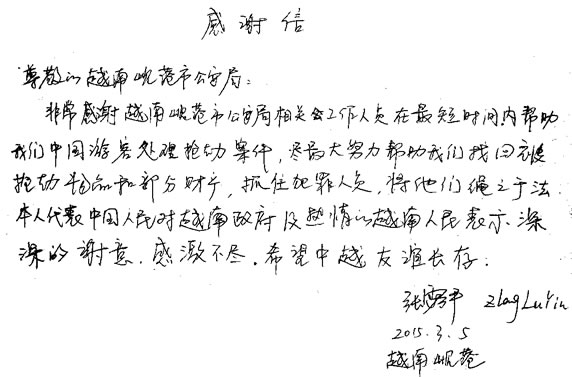 感谢信
尊敬的越南岘港市公安局:
非常感谢越南岘港市公安局相关工作人员在最短时间内帮助
我们中国游客处理抢劫案件,尽最大努力帮助我们找回被
抢劫物品和部分财产,抓住犯罪人员,将他们绳之于法
本人代表中国人民对越南政府及热情的越南人民表示深
深的谢意.感激不尽.希望中越友谊长存.
2015.3.5
越南岘港